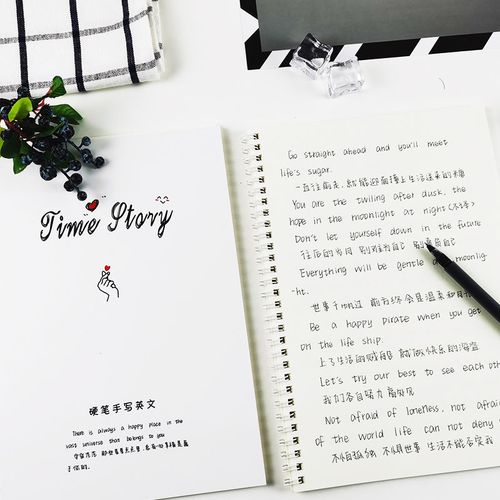 Time Story
硬笔手写英文
There is always a happy place in the
vast universe that belongs to you
于你的。
Go straight ahead and you'll meet
life's sugar.
一直往前走，就能迎面撞上生活送来的糖
You are the twiling after dusk, the
hope in the moonlight at night
Don't let yourself down in the future
往后的时间 别难为自己 别辜负自己
Everything will be gentle moonlig-
ht.
世事千帆过 前方终会是温柔和月
Be a happy pirate when you get
on the life ship.
上了生活的贼船 就做快乐的海盗
Let's try our best to see each othe
我们各自努力 高处见
Not afraid of loneless, not afraid
of the world life can not deny
不惧孤独 不惧世事 生活不能否定我